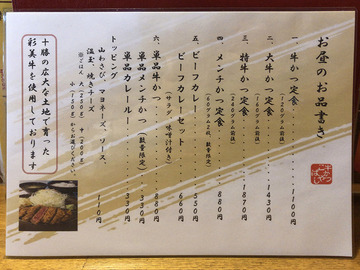 お昼のお品書き
一、牛かつ定食 ......... 1100円
(120グラム前後)
二、大牛かつ定食 ...... 1430円
(180グラム前後)
三、特牛かつ定食 ...... 1870円
(240グラム前後)
四、メンチかつ定食 ...... 880円
五、ビーフカレー ......... 550円
ビーフカレーセット ...... 660円
(サラダ、味噌汁付き)
六、単品牛かつ ......... 880円
単品メンチかつ(数量限定) ... 330円
単品カレールー ......... 330円
トッピング
山わさび、マヨネーズ、ソース、
温玉、焼きチーズ ......... 110円
十勝の広大な土地で育った
彩美牛を使用しております